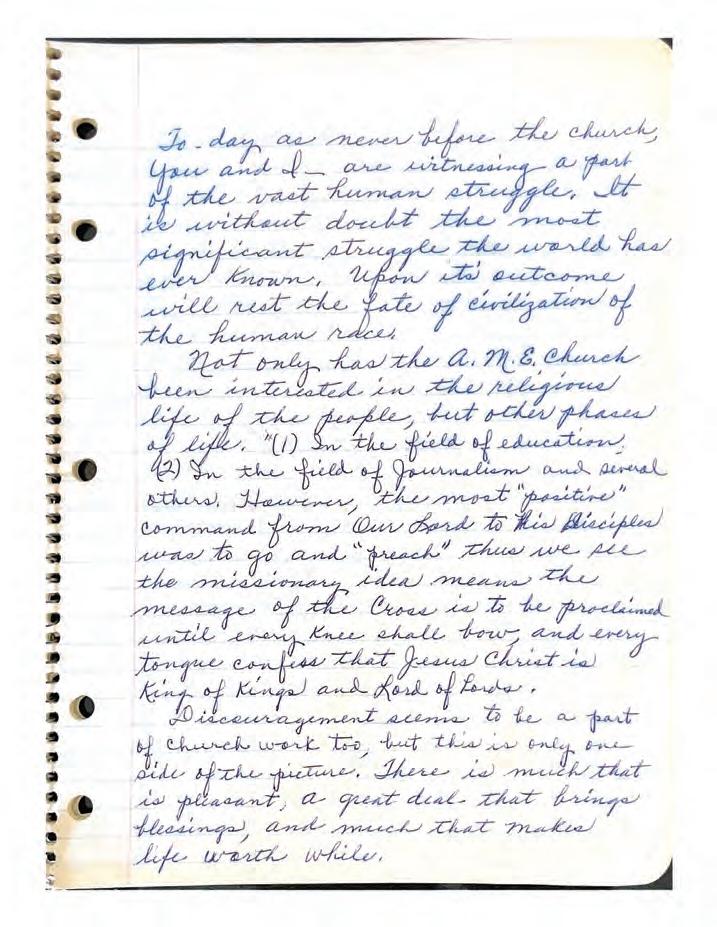 To-day as never before the church,
You and I _ are witnessing a part
of the vast human struggle. It
is without doubt the most
significant struggle the world has
ever known. Upon its' outcome
will rest the fate of civilization of
the human race.
Not only has the A. M. E. Church
been interested in the religious
life of the people, but other phases
of life. "(1) In the field of education.
(2) In the field of Journalism and several
others. However, the most "positive"
command from Our Lord to His Disciples
was to go and "preach" thus we see
the missionary idea means the
message of the Cross is to be proclaimed
until every knee shall bow, and every
tongue confess that Jesus Christ is
King of Kings and Lord of Lords.
Discouragement seems to be a part
of church work too, but this is only one
side of the picture. There is much that
is pleasant, a great deal that brings
blessings, and much that makes
life worth while.